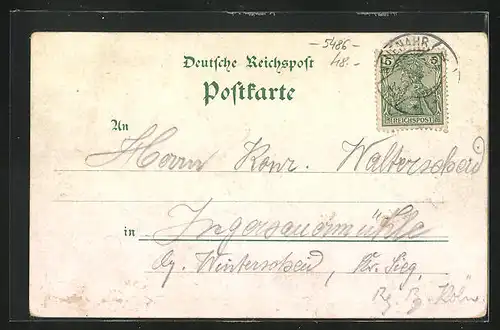 -5486-
18.-
Deutsche Reichspost
Postkarte
5 5
REICHSPOST
An
Herrn Konr. Walterscheid
in
Ingersauermühle
Winterscheid, Kr. Sieg,
Rg. Bz. Köln